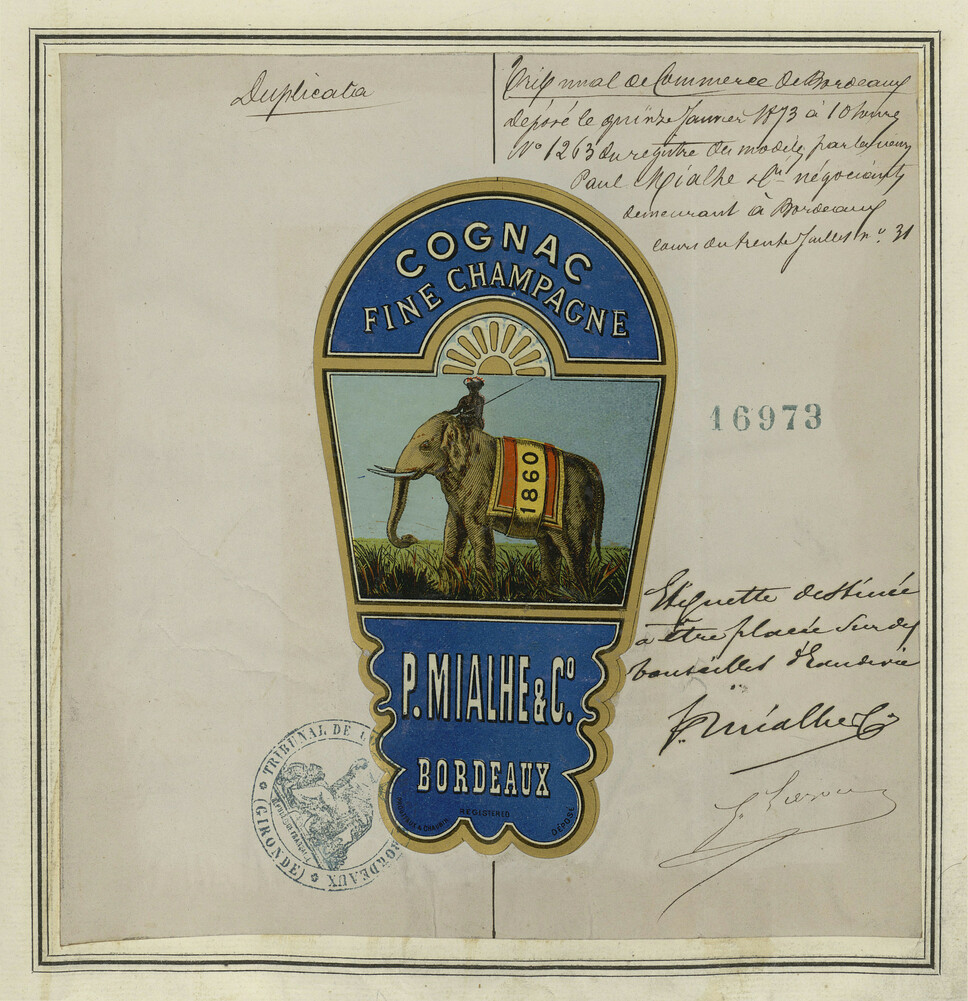 Duplicata
Tribunal de Commerce de Bordeaux
déposé le quinze Janvier 1873 à 10 heures
No 1263 du registre des modèles par les sieurs
Paul Mialhe & Cie négociants
demeurant à Bordeaux
cours du trente Juillet no. 31
COGNAC
FINE CHAMPAGNE
16973
1860
Etiquette destinée
à être placée sur des
bouteilles d'Eaudevie
P. Mialhe & Co
P. MIALHE & Co.
BORDEAUX
REGISTERED
DÉPOSÉ
TRIBUNAL DE
BORDEAUX
(GIRONDE)